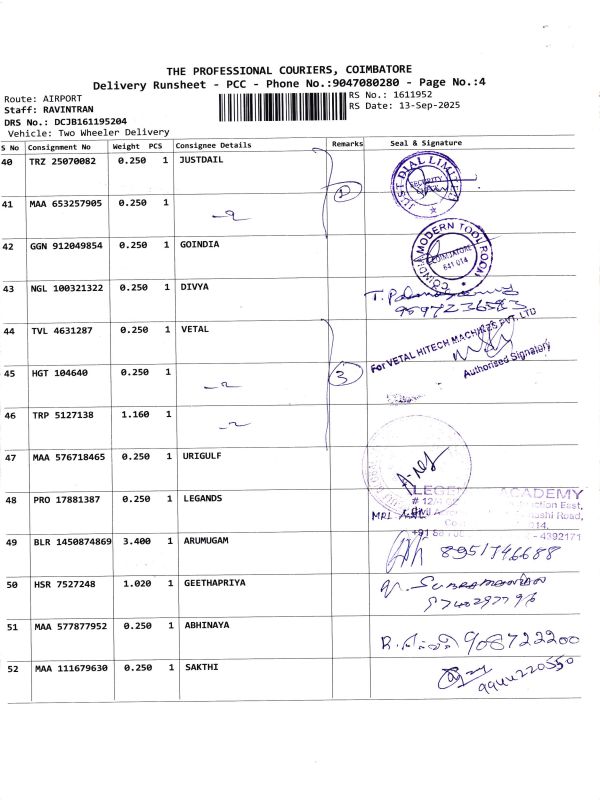 THE PROFESSIONAL COURIERS, COIMBATORE
Delivery Runsheet - PCC - Phone No.:9047080280 - Page No.:4
Route: AIRPORT
RS No.: 1611952
Staff: RAVINTRAN
RS Date: 13-Sep-2025
DRS No.: DCJB161195204
Vehicle: Two Wheeler Delivery
S No Consignment No Weight PCS Consignee Details Remarks Seal & Signature
40 TRZ 25070082 0.250 1 JUSTDAIL
JUST DIAL LIMITED
SECURITY
41 MAA 653257905 0.250 1
2
42 GGN 912049854 0.250 1 GOINDIA
COINDIA MODERN TOOL ROOM
COIMBATORE
641 014
43 NGL 100321322 0.250 1 DIVYA
9597236583
44 TVL 4631287 0.250 1 VETAL
For VETAL HITECH MACHINES PVT. LTD
Authorised Signatory
45 HGT 104640 0.250 1
3
46 TRP 5127138 1.160 1
47 MAA 576718465 0.250 1 URIGULF
48 PRO 17881387 0.250 1 LEGANDS
ACADEMY
49 BLR 1450874869 3.400 1 ARUMUGAM
8951746688
50 HSR 7527248 1.020 1 GEETHAPRIYA
51 MAA 577877952 0.250 1 ABHINAYA
52 MAA 111679630 0.250 1 SAKTHI
9944220550